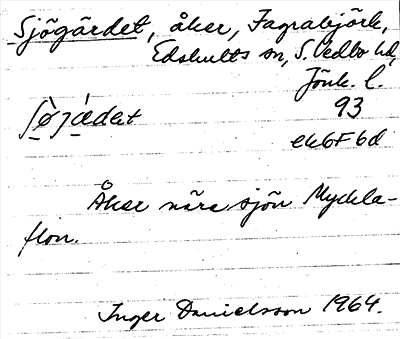 Sjögärdet, åker, Fagrabjörk,
Edshults sn, S. Vedbo hd,
Jönk. l.
93
ek6F6d
Åker nära sjön Myckla-
flon.
Inger Danielsson 1964.